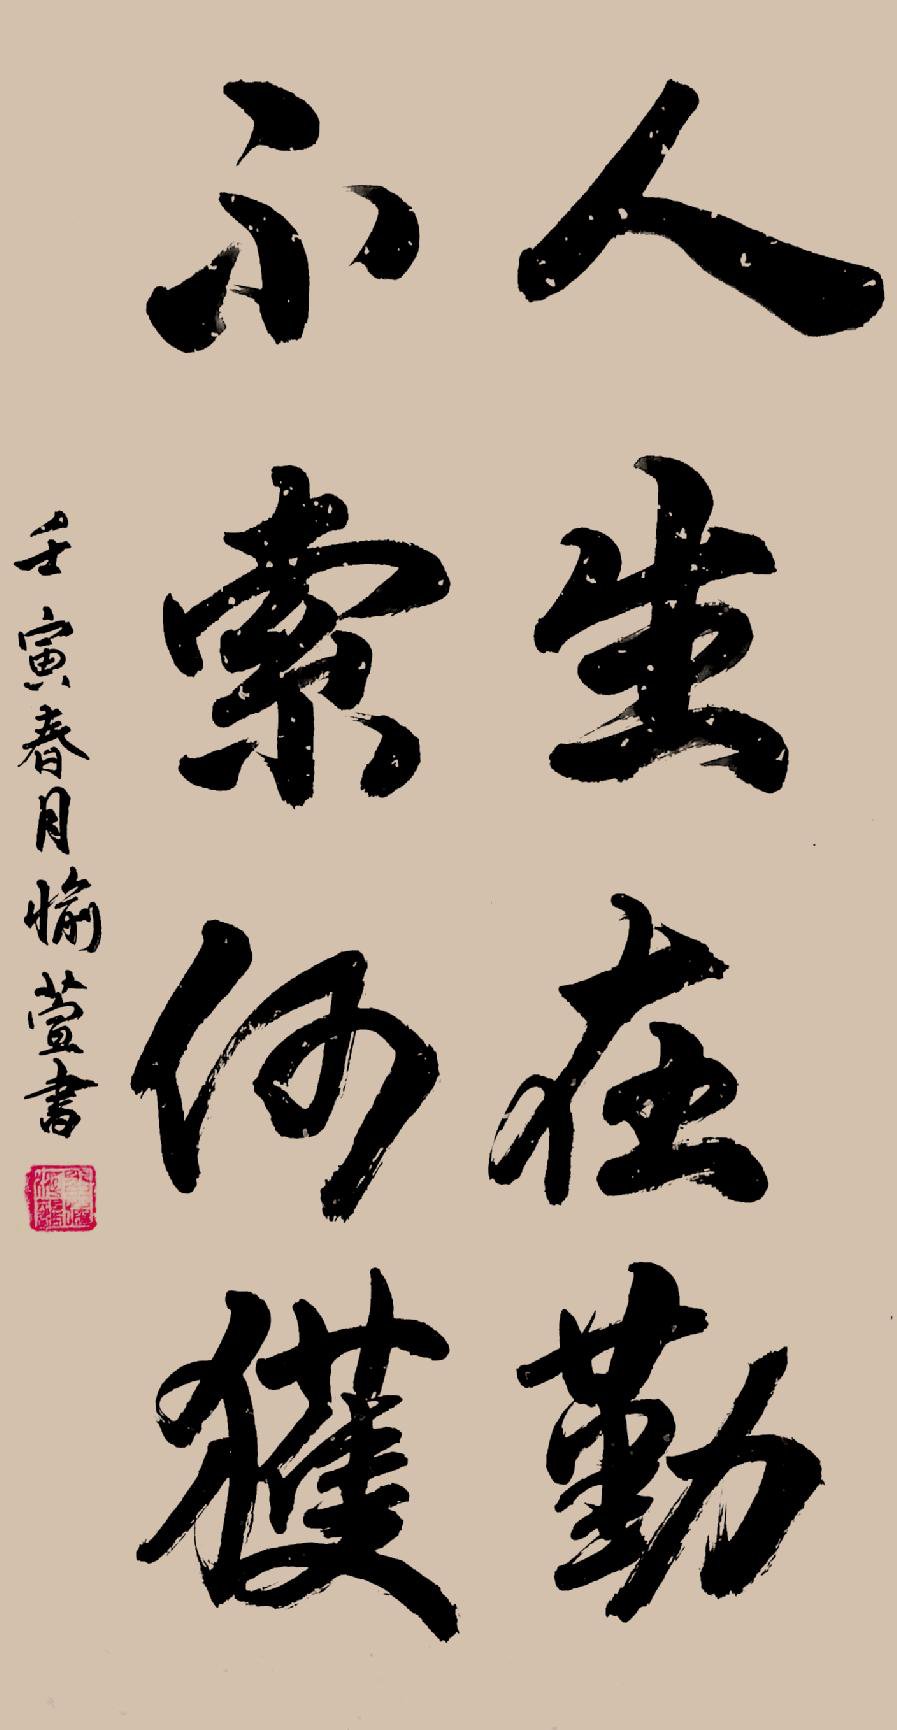 人生在勤
不索何獲
壬寅春月愉萱書